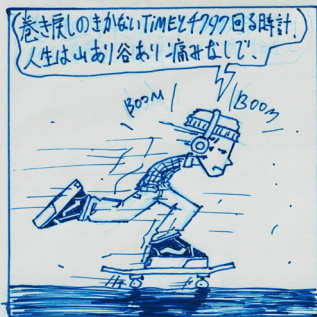 巻き戻しのきかないTiMEとチクタク回る時計、
人生は山あり谷あり痛みなしで、
BOOM
BOOM